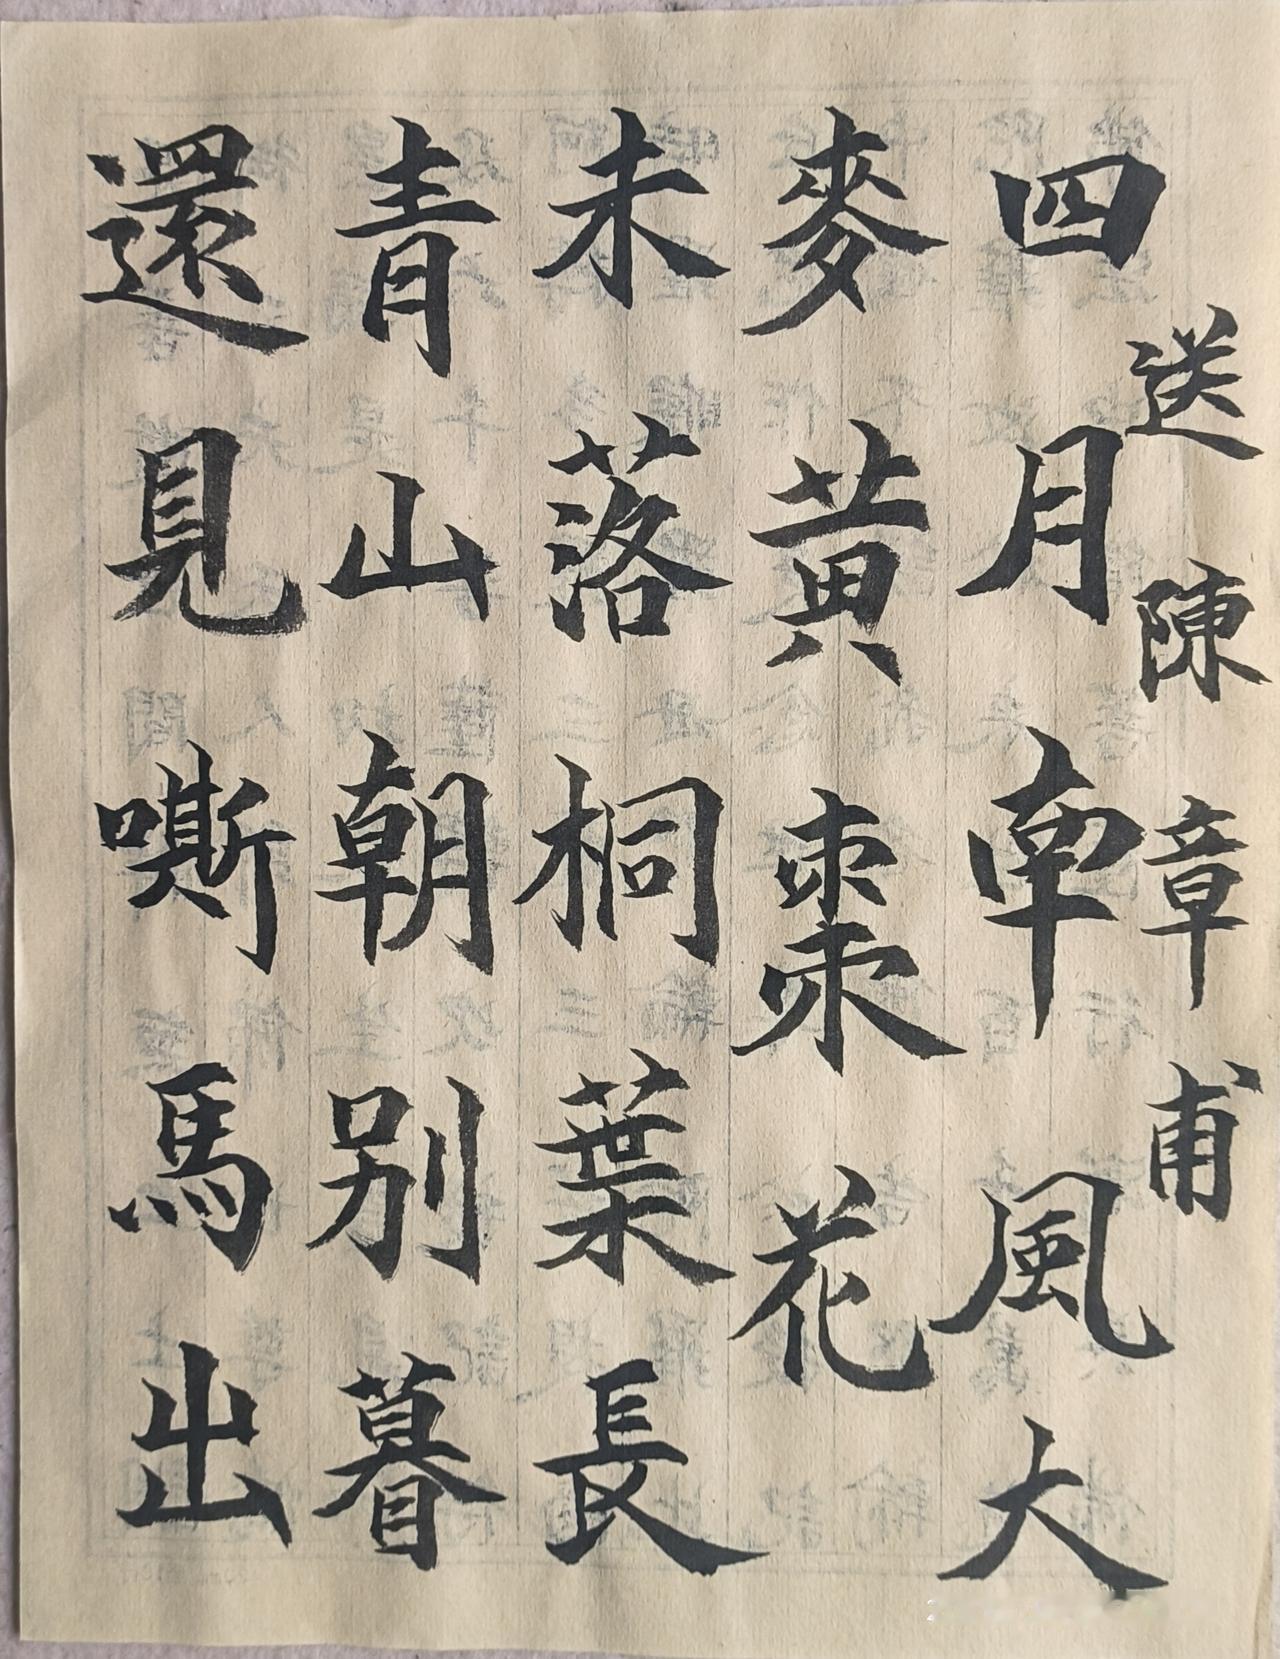 送陳章甫
四月南風大
麥黄棗花
未落桐葉長
青山朝别暮
還見嘶馬出